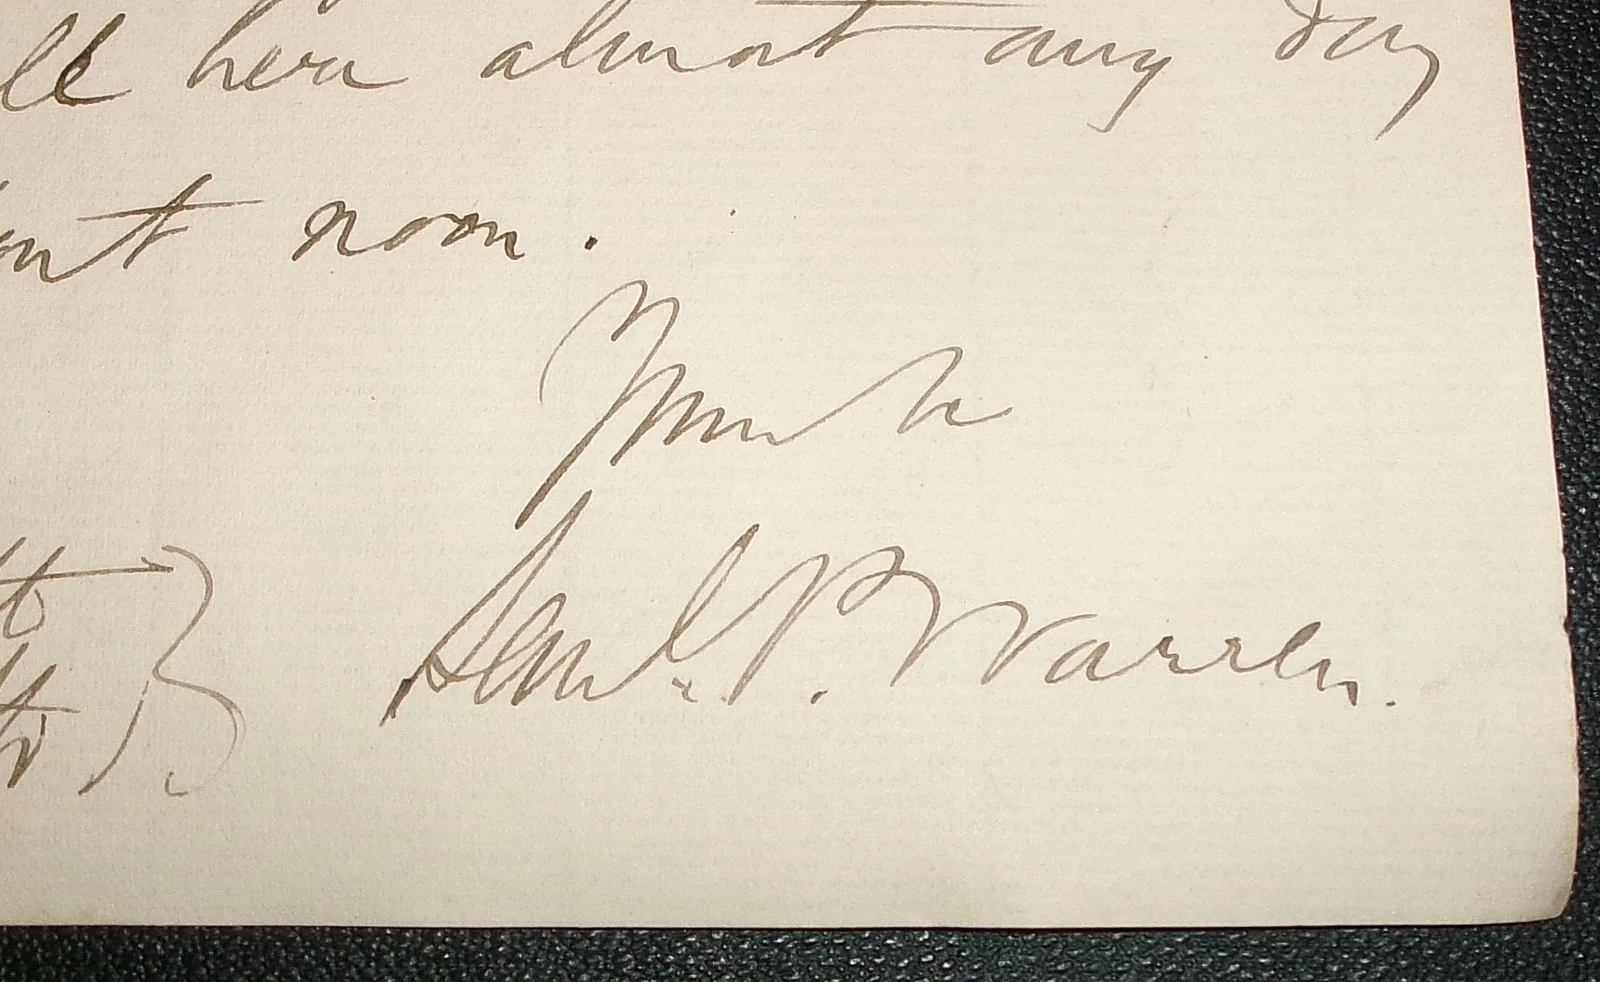 ll here almost any day
noon.
Yours tr
Saml. P. Warren.